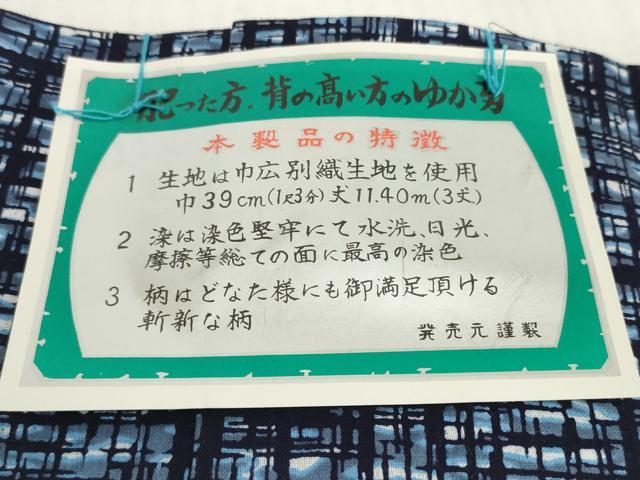 配った方、背の高い方のゆか
本製品の特徴
1 生地は巾広別織生地を使用
巾39cm(1尺3分)丈11.40m(3丈)
2 染は染色堅牢にて水洗、日光、
摩擦等総ての面に最高の染色
3 柄はどなた様にも御満足頂ける
斬新な柄
発売元謹製